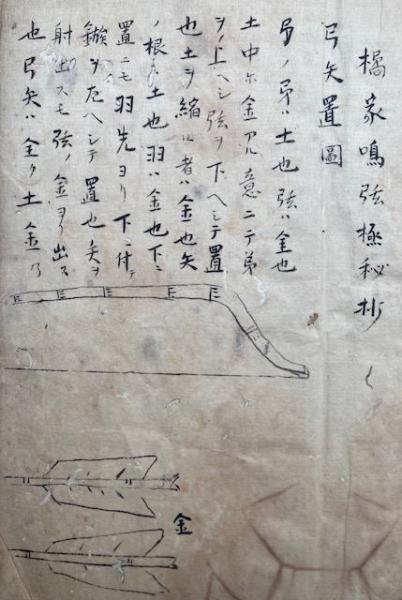 橘家鳴弦極秘
弓矢置圖
弓ノ弟ハ土也弦ハ金也
土中ニ金アル意ニテ弟
ヲ上ヘシ弦ヲ下ヘシテ置
也土ヲ縮ル者ハ金也矢
ノ根ハ土也羽ハ金也下ニ
置ニモ羽先ヨリ下ニ付テ
鏃ヲ左ヘシテ置也矢ヲ
射出スモ弦ノ金ヨリ出ル
也弓矢ハ全ク土金
金